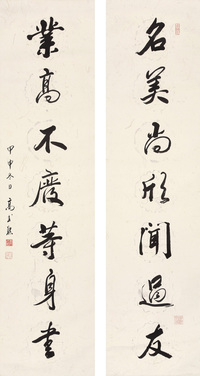 名美尚欣聞過友
業高不廢等身書
甲申冬日高二適